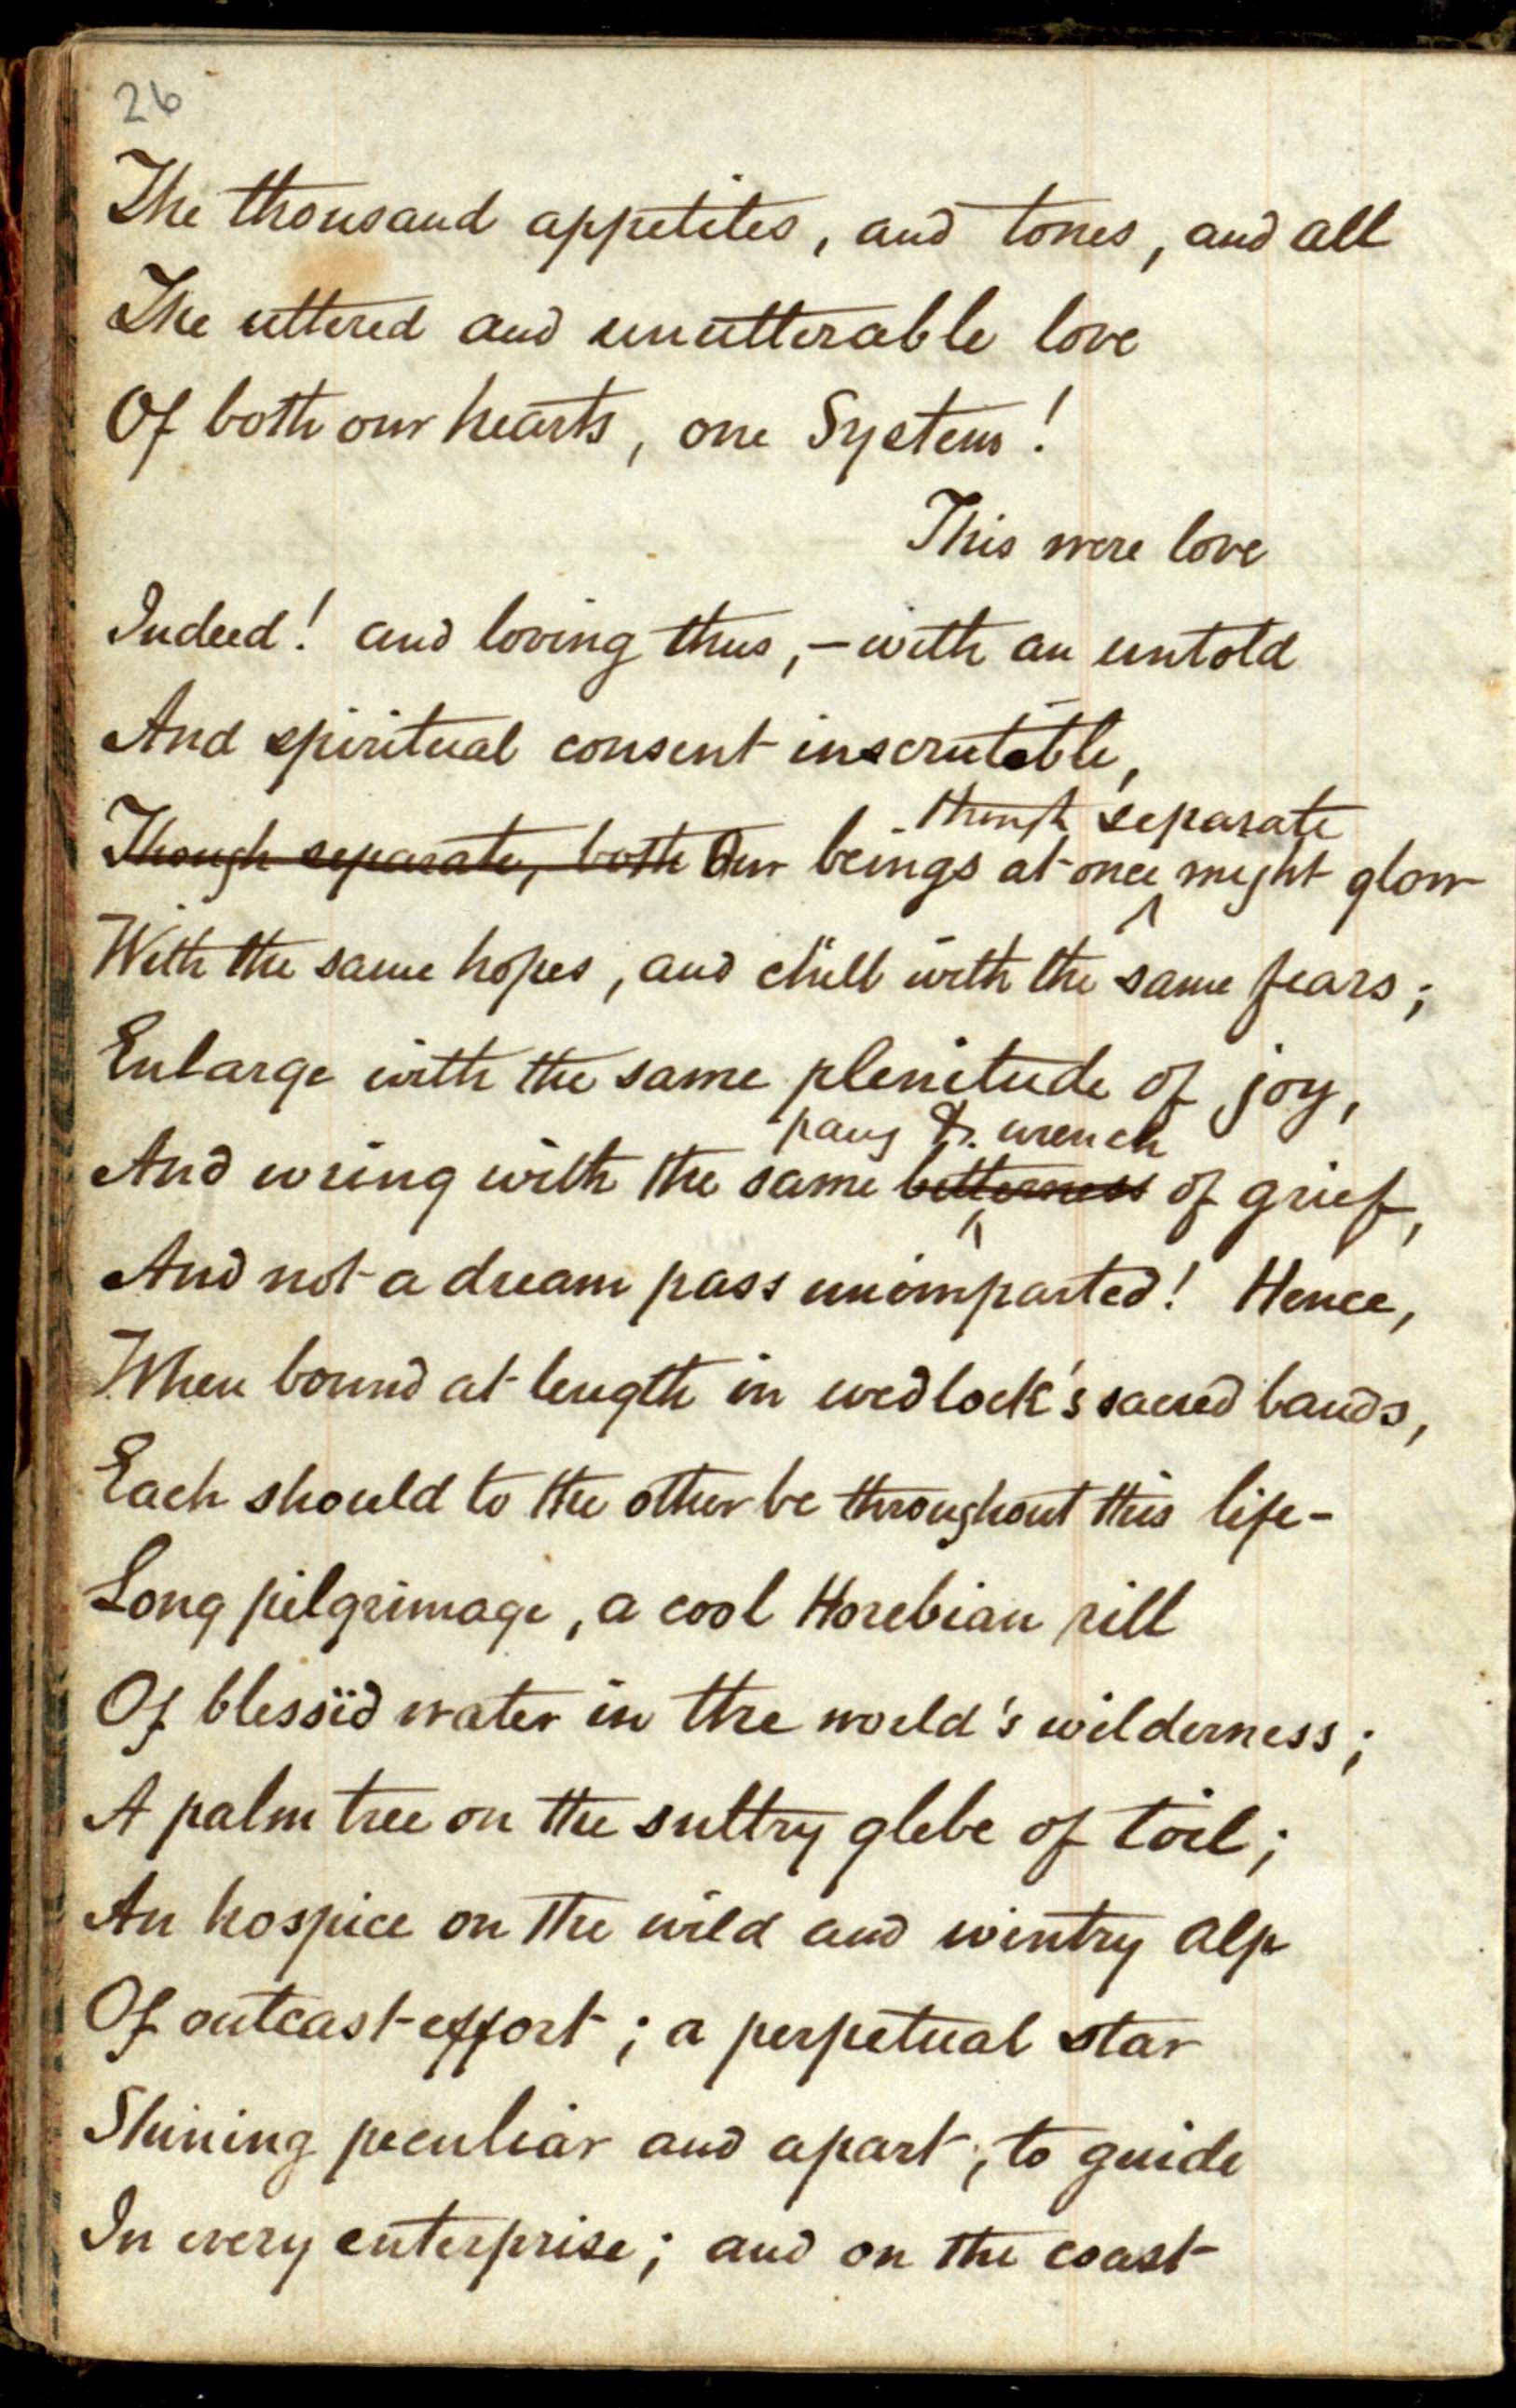 26
The thousand appetites, and tones, and all
The uttered and unutterable love
Of both our hearts, one System!
This were love
Indeed! and loving thus,—with an untold
And spiritual consent inscrutable,
though separate
Though separate, both Our beings at once might glow
With the same hopes, and chill with the same fears;
Enlarge with the same plenitude of joy,
pang &. wrench
And wring with the same bitterness of grief,
And not a dream pass unimparted! Hence,
When bound at length in wedlock's sacred bands,
Each should to the other be throughout this life-
Long pilgrimage, a cool Horebian rill
Of blessïd water in the world's wilderness;
A palm tree on the sultry glebe of toil;
An hospice on the wild and wintry alp
Of outcast effort; a perpetual star
Shining peculiar and apart, to guide
In every enterprise; and on the coast